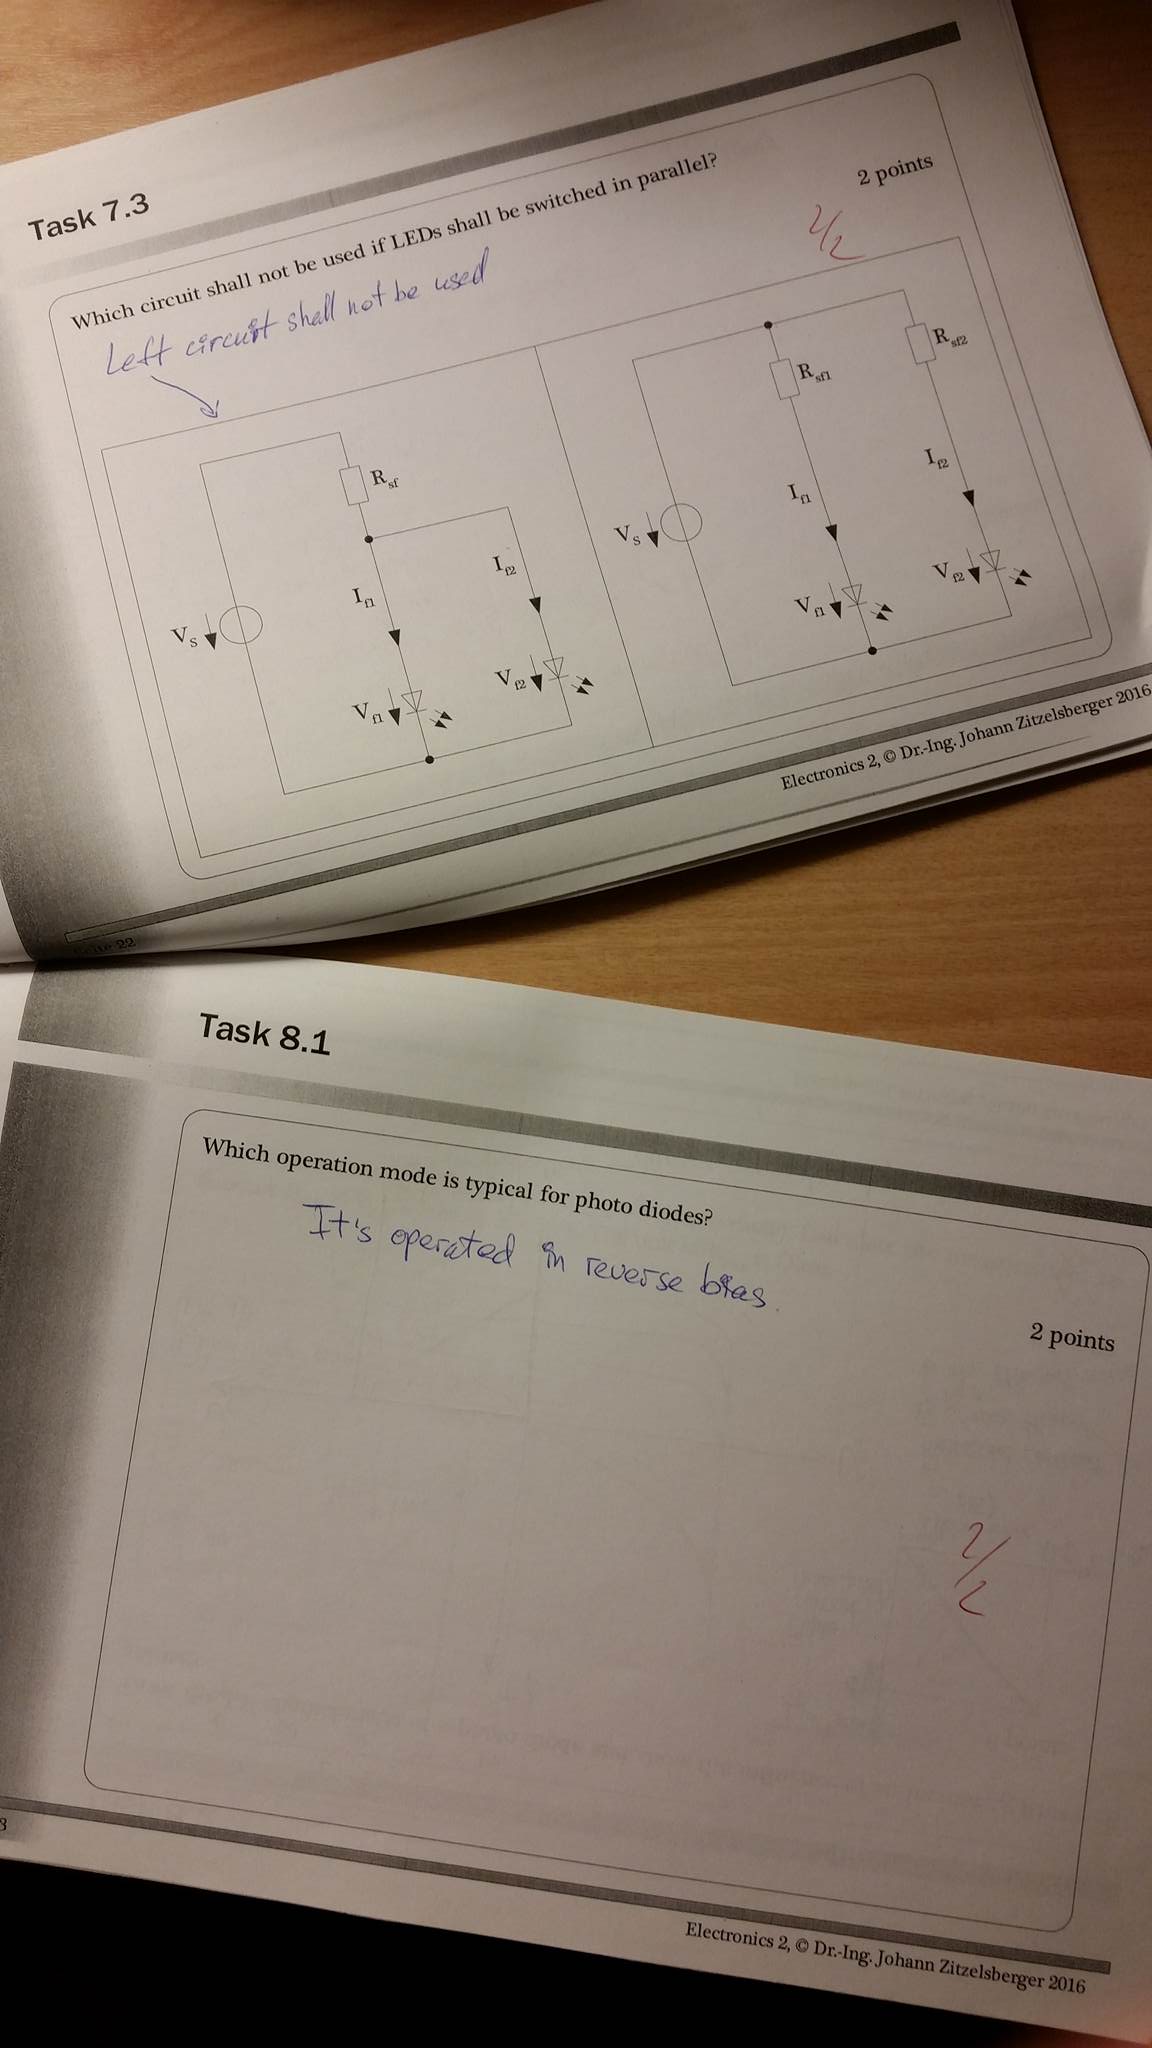 Task 7.3
Which circuit shall not be used if LEDs shall be switched in parallel?
2 points
2/2
Left circuit shall not be used
Rsf
If1
If2
VS
Vf1
Vf2
Rsf1
Rsf2
If1
If2
VS
Vf1
Vf2
Electronics 2, © Dr.-Ing. Johann Zitzelsberger 2016
Seite 22
Task 8.1
Which operation mode is typical for photo diodes?
It's operated in reverse bias.
2 points
2/2
Electronics 2, © Dr.-Ing. Johann Zitzelsberger 2016